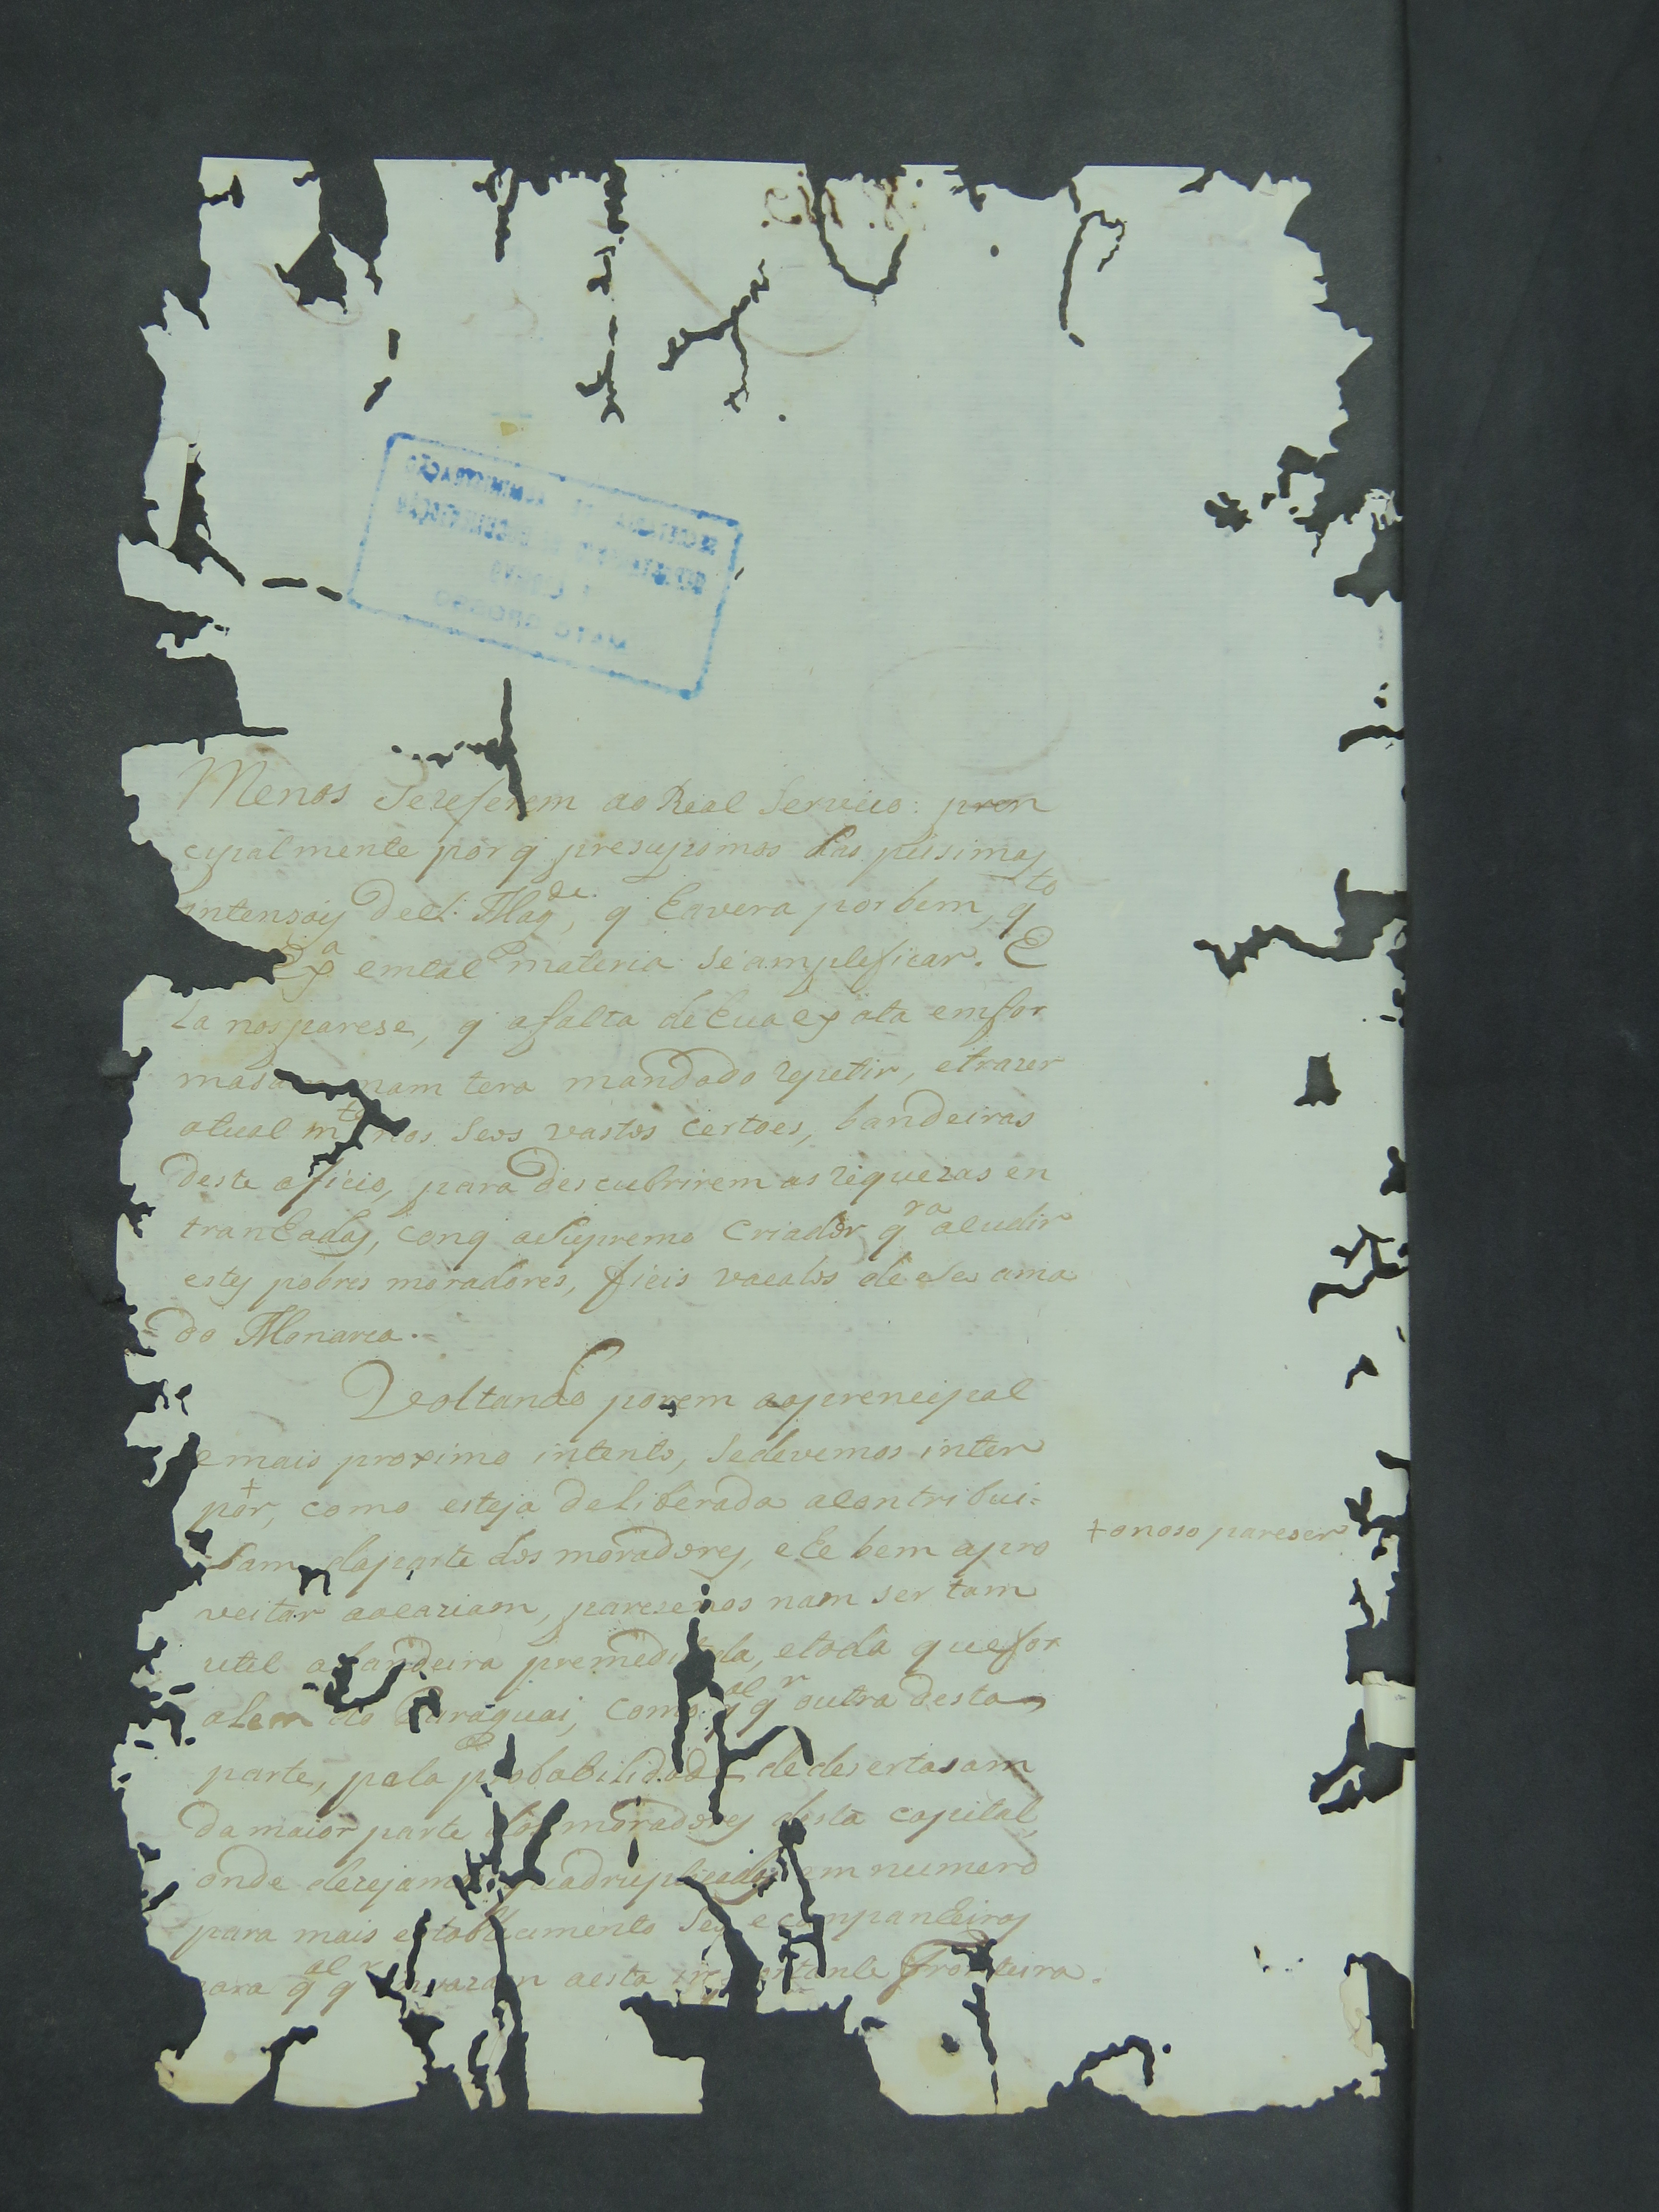 Menos se referem ao Real Serviço: pren
cipalmente por q presupomos das piisimas
intensois de el. Magde, q Eavera por bem, qto
Exa em tal materia se ampleficar. E
la nos parese, q a falta de Eua exata emfor
masam nam tera mandado repetir, e trazer
atual mte nos seos vastos certoes, bandeiras
deste oficio, para descubrirem as riquezas en
tranEadas, conq o Supremo Criador qra acudir
estes pobres moradores, fieis vacalos de seu ama
do Monarca.
Voltando porem ao prencipal
e mais proximo intento, se devemos inter
por, + como esteja deliberada a contribui-
sam da parte dos moradores, e Ee bem apro
+ o noso pareser
veitar a ocaziam, paresenos nam ser tam
util a bandeira premeditada, e toda que for
alem do Paraguai, como qal qr outra desta
parte, pela probabilidade de desertasam
da maior parte dos moradores desta capital,
onde dezejamos quadruplicados em numero
para mais estabelicimento seu, e companEeiros
para qal qr invazam a esta importante Fronteira.